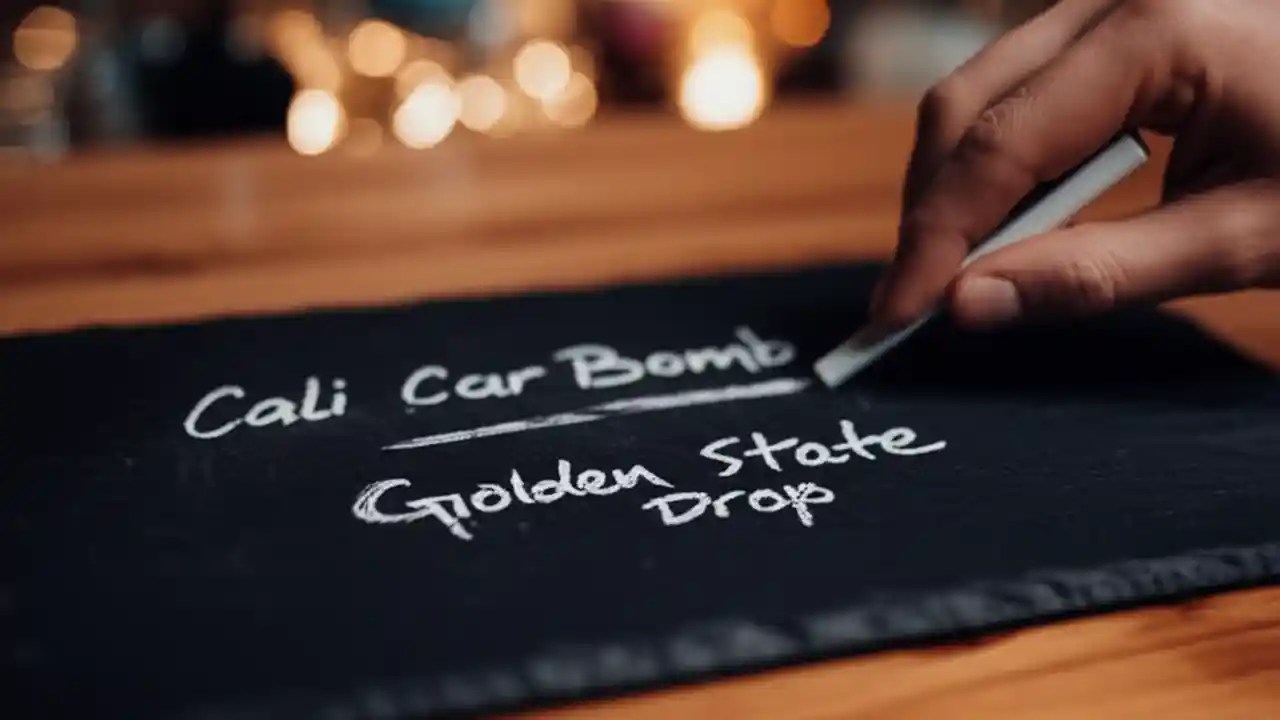 Cali Car Bomb
Golden State
Drop